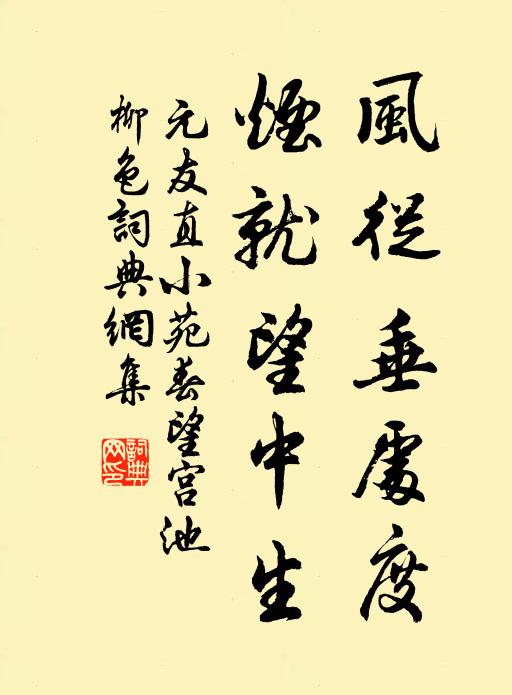 風從垂處度
煙就望中生
元友直小苑春望宮池
柳色詞典網集
詞典網印